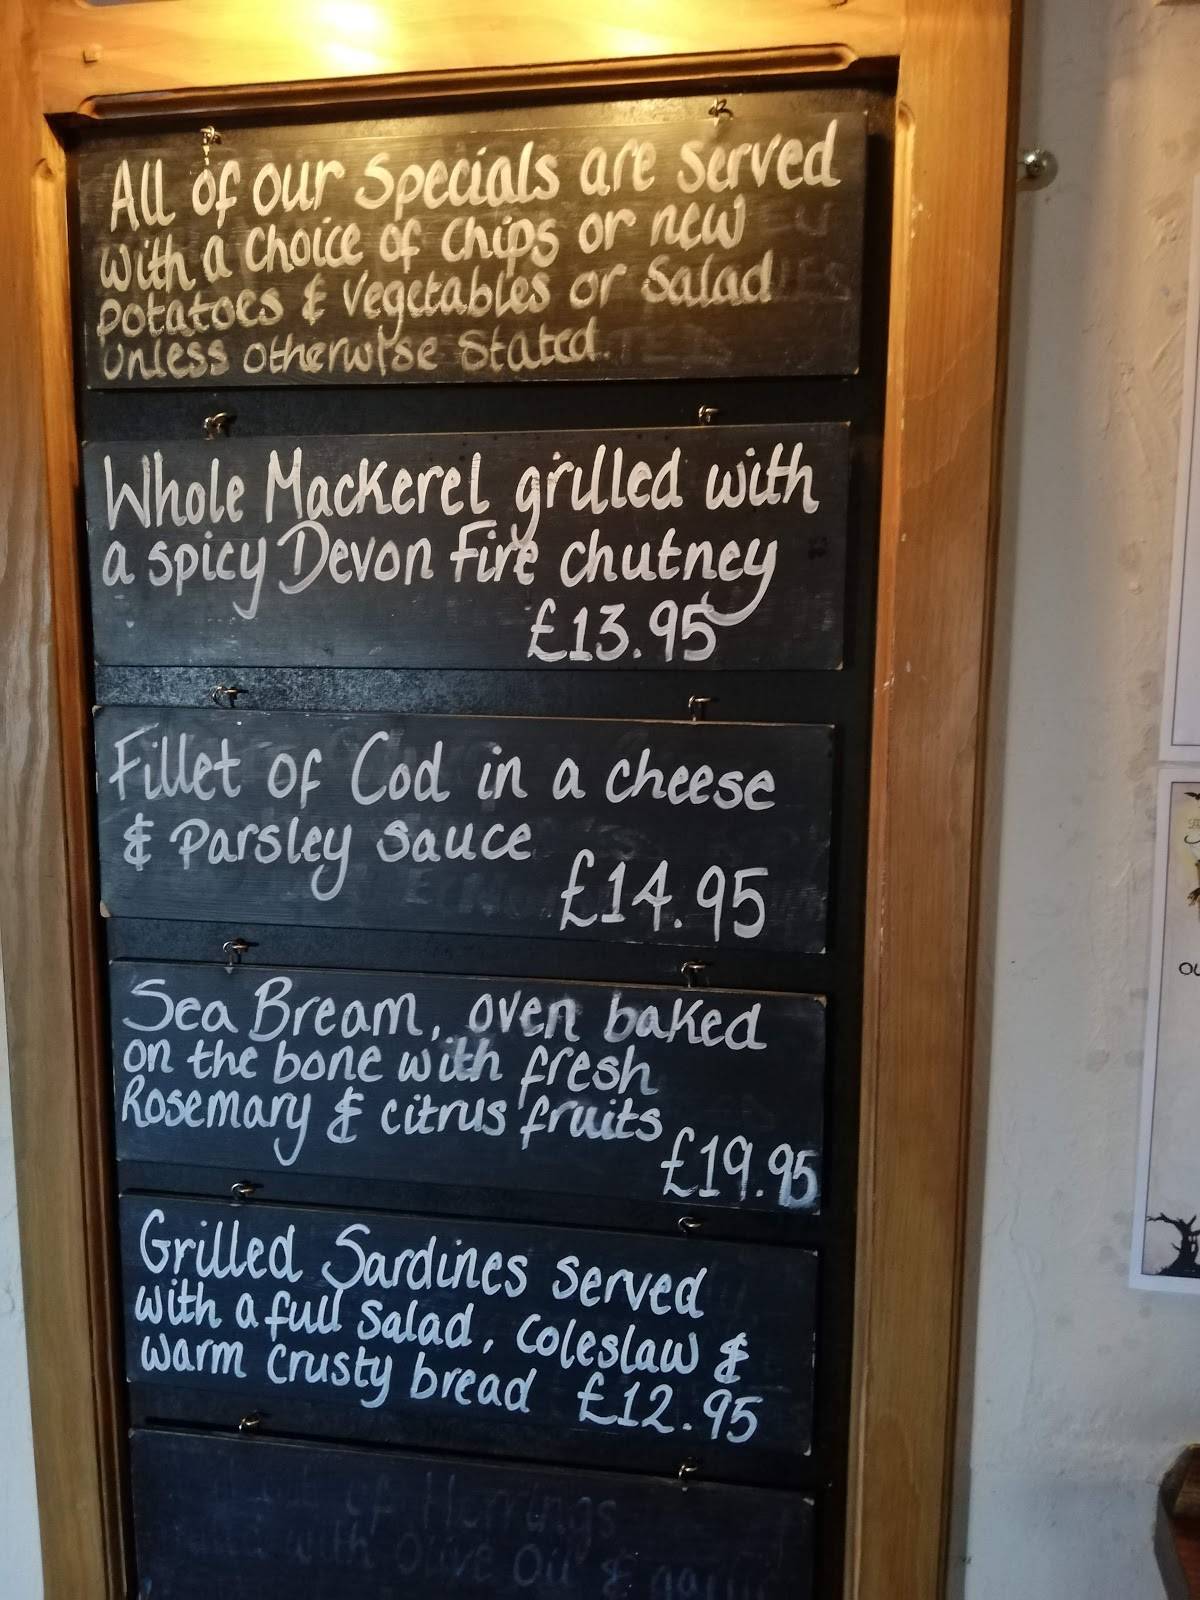 All of our Specials are served
with a choice of chips or new
potatoes & vegetables or Salad
unless otherwise stated.
Whole Mackerel grilled with
a spicy Devon Fire chutney
£13.95
Fillet of Cod in a cheese
& Parsley sauce
£14.95
Sea Bream, oven baked
on the bone with fresh
Rosemary & citrus fruits
£19.95
Grilled Sardines served
with a full Salad, Coleslaw &
warm crusty bread £12.95
of Herrings
with Olive Oil &